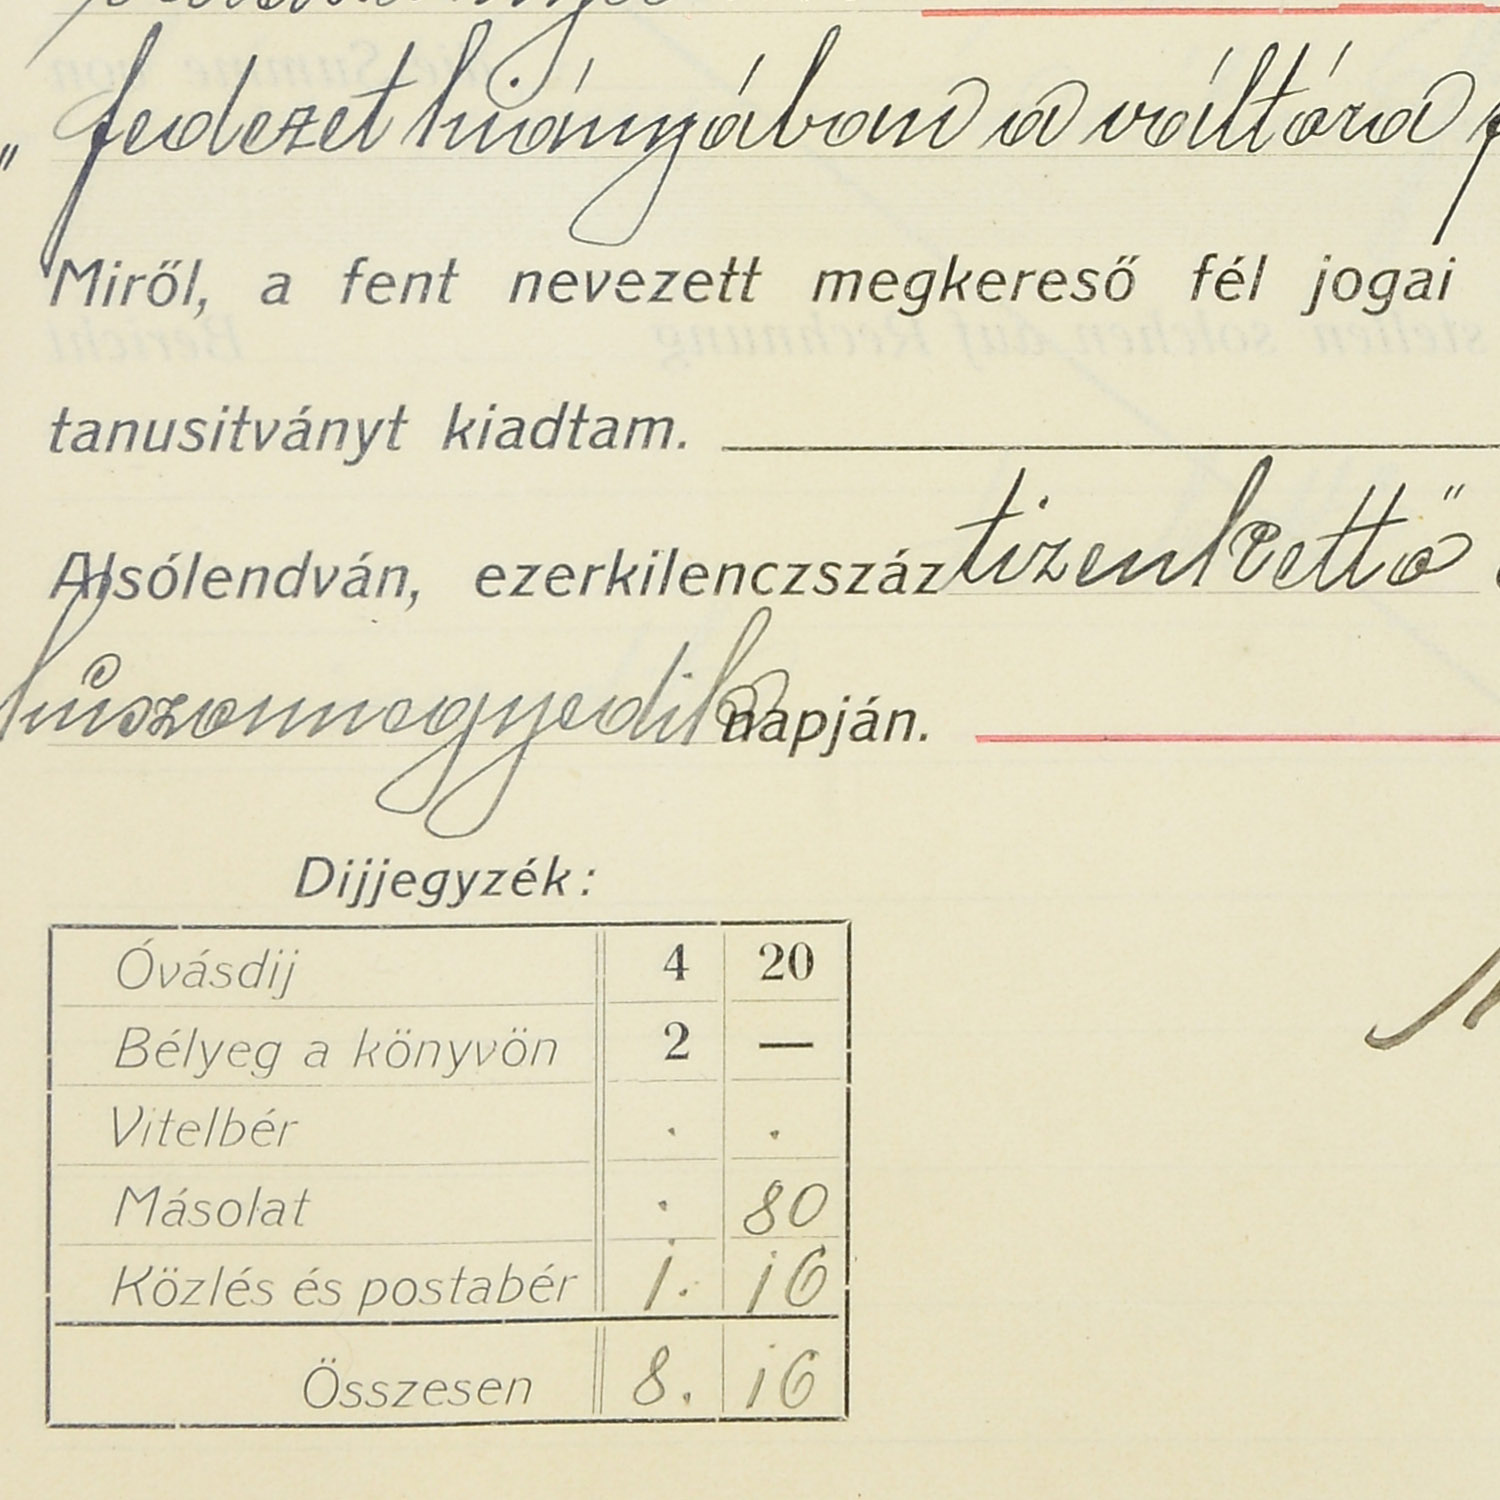 „fedezet hiányában a váltóra
Miről, a fent nevezett megkereső fél jogai
tanusitványt kiadtam.
Alsólendván, ezerkilenczszáz tizenkettő
huszonnegyedik napján.
Dijjegyzék:
Óvásdij 4 20
Bélyeg a könyvön 2 —
Vitelbér . .
Másolat . 80
Közlés és postabér 1. 16
Összesen 8. 16